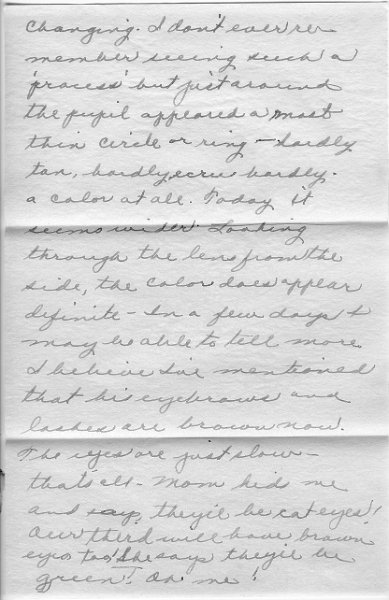 changing. I don't ever re-
member seeing such a
'process' but just around
the pupil appeared a most
thin circle or ring – hardly
tan, hardly ecru hardly
a color at all. Today it
seems wider. Looking
through the lens from the
side, the color does appear
definite – In a few days I
may be able to tell more.
I believe I've mentioned
that his eyebrows and
lashes are brown now.
The eyes are just slow –
that's all – Mom kids me
and says they'll be cat eyes!
Our third will have brown
eyes too! She says they'll be
green! Oh me!